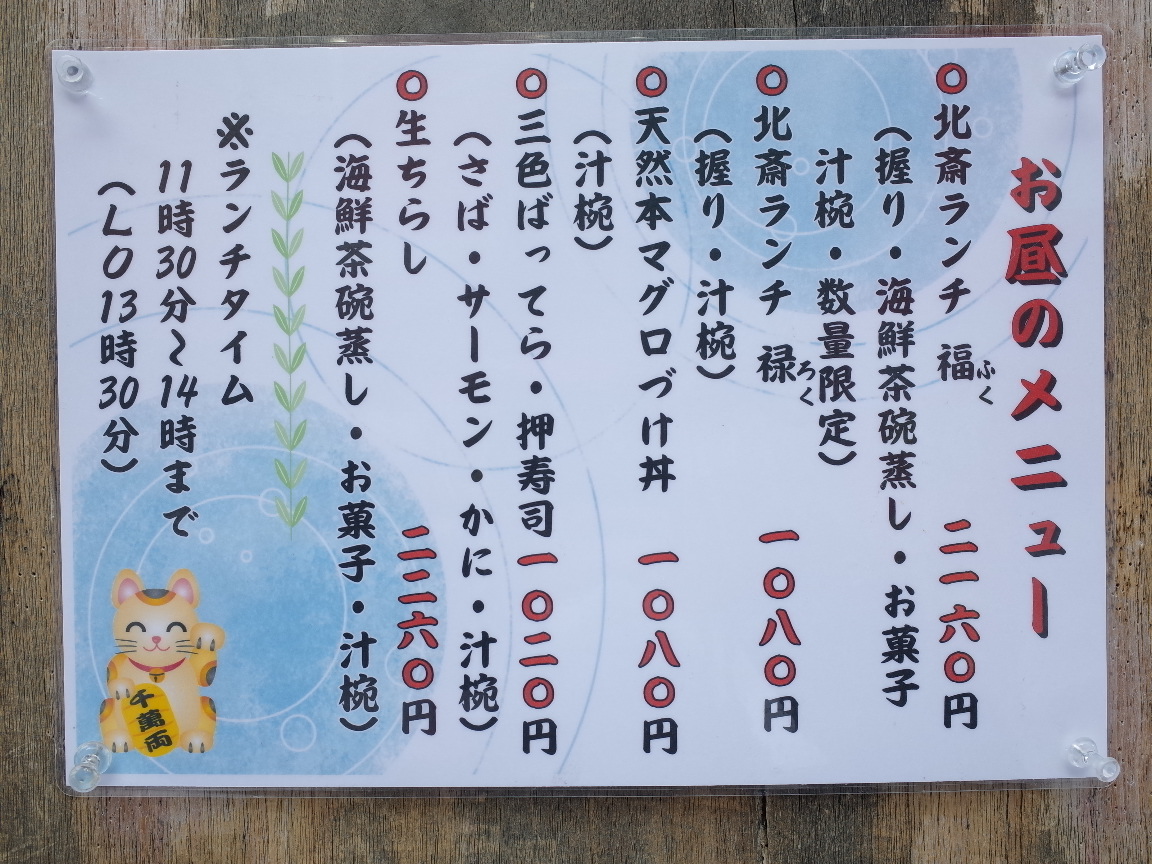 お昼のメニュー
〇北斎ランチ 福 二一六〇円
ふく
（握り・海鮮茶碗蒸し・お菓子
汁椀・数量限定）
〇北斎ランチ 禄 一〇八〇円
ろく
（握り・汁椀）
〇天然本マグロづけ丼 一〇八〇円
（汁椀）
〇三色ばってら・押寿司 一〇二〇円
（さば・サーモン・かに・汁椀）
〇生ちらし 二二六〇円
（海鮮茶碗蒸し・お菓子・汁椀）
※ランチタイム
11時30分～14時まで
（ＬＯ13時30分）
千萬両